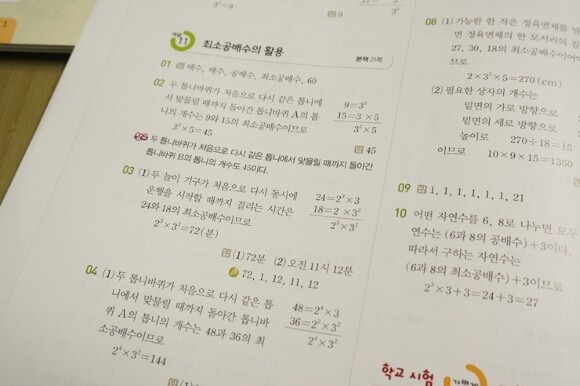 3²=9
답 9
개념 11 최소공배수의 활용
본책 29쪽
01 답 배수, 배수, 공배수, 최소공배수, 60
02 두 톱니바퀴가 처음으로 다시 같은 톱니에
서 맞물릴 때까지 돌아간 톱니바퀴 A의 톱
니의 개수는 9와 15의 최소공배수이므로
3²×5=45
9=3²
15=3 ×5
3²×5
답 45
두 톱니바퀴가 처음으로 다시 같은 톱니에서 맞물릴 때까지 돌아간
톱니바퀴 B의 톱니의 개수도 45이다.
03 (1) 두 놀이 기구가 처음으로 다시 동시에
운행을 시작할 때까지 걸리는 시간은
24와 18의 최소공배수이므로
2³×3²=72(분)
24=2³×3
18=2 ×3²
2³×3²
답 (1) 72분 (2) 오전 11시 12분
72, 1, 12, 11, 12
04 (1) 두 톱니바퀴가 처음으로 다시 같은 톱
니에서 맞물릴 때까지 돌아간 톱니바
퀴 A의 톱니의 개수는 48과 36의 최
소공배수이므로
2⁴×3²=144
48=2⁴×3
36=2²×3²
2⁴×3²
답 (1)
08 (1) 가능한 한 작은 정육면체를 만
면 정육면체의 한 모서리의 길
27, 30, 18의 최소공배수이어야
므로
2×3³×5=270(cm)
(2) 필요한 상자의 개수는
밑면의 가로 방향으로
밑면의 세로 방향으로
높이로 270÷18=15
이므로 10×9×15=1350
09 답 1, 1, 1, 1, 1, 21
10 어떤 자연수를 6, 8로 나누면 모두
연수는 (6과 8의 공배수)+3이다.
따라서 구하는 자연수는
(6과 8의 최소공배수)+3이므로
2³×3+3=24+3=27
학교 시험